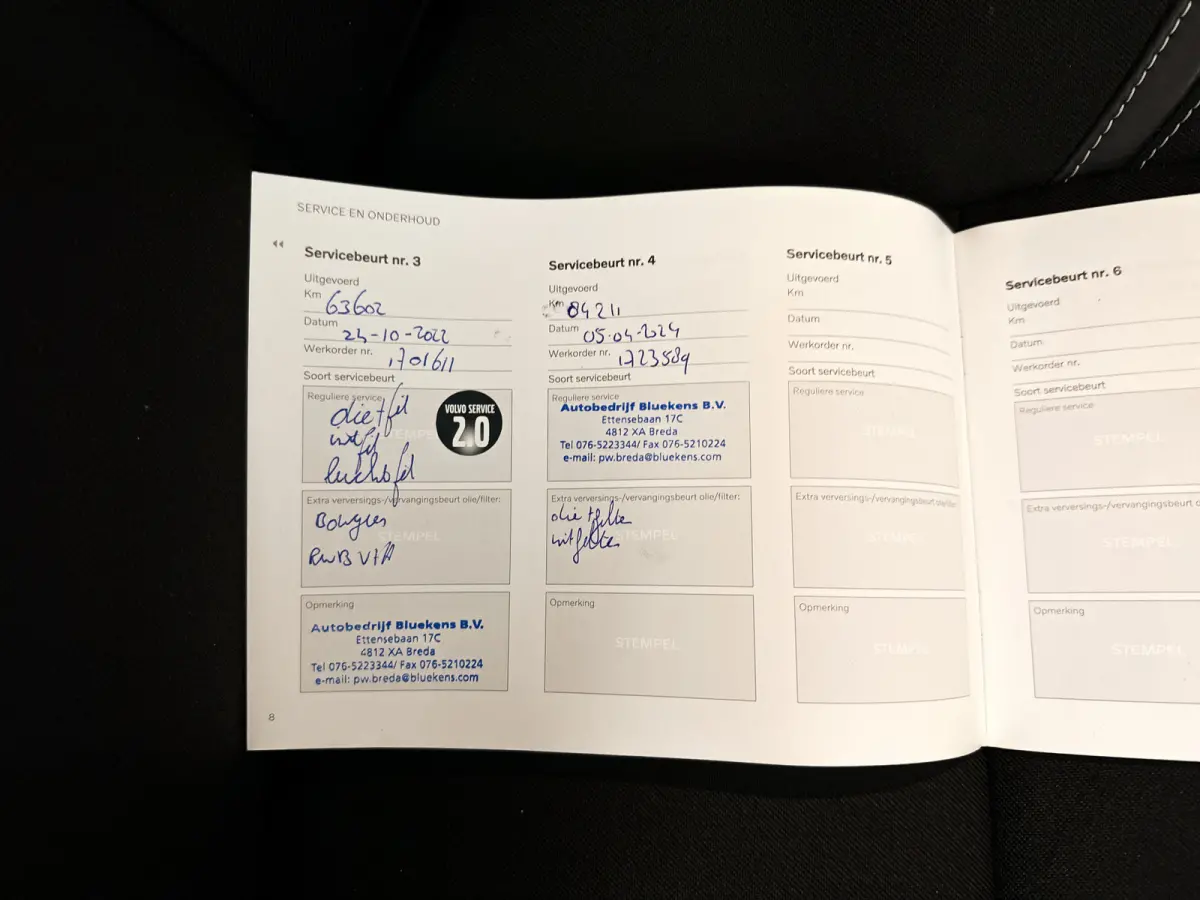 SERVICE EN ONDERHOUD
Servicebeurt nr. 3
Uitgevoerd
Km 63602
Datum 24-10-2022
Werkorder nr. 1701611
Soort servicebeurt
Reguliere service
olie+fil
VOLVO SERVICE
2.0
STEMPEL
Extra verversings-/vervangingsbeurt olie/filter:
Bougies
STEMPEL
Opmerking
Autobedrijf Bluekens B.V.
Ettensebaan 17C
4812 XA Breda
Tel 076-5223344/ Fax 076-5210224
e-mail: pw.breda@bluekens.com
8
Servicebeurt nr. 4
Uitgevoerd
Km 84211
Datum 05-04-2024
Werkorder nr. 1723589
Soort servicebeurt
Reguliere service
Autobedrijf Bluekens B.V.
Ettensebaan 17C
4812 XA Breda
Tel 076-5223344/ Fax 076-5210224
e-mail: pw.breda@bluekens.com
Extra verversings-/vervangingsbeurt olie/filter:
olie +filter
STEMPEL
Opmerking
STEMPEL
Servicebeurt nr. 5
Uitgevoerd
Km
Datum
Werkorder nr.
Soort servicebeurt
Reguliere service
STEMPEL
Extra verversings-/vervangingsbeurt olie/filter:
STEMPEL
Opmerking
STEMPEL
Servicebeurt nr. 6
Uitgevoerd
Km
Datum
Werkorder nr.
Soort servicebeurt
Reguliere service
STEMPEL
Extra verversings-/vervangingsbeurt
STEMPEL
Opmerking
STEMPEL